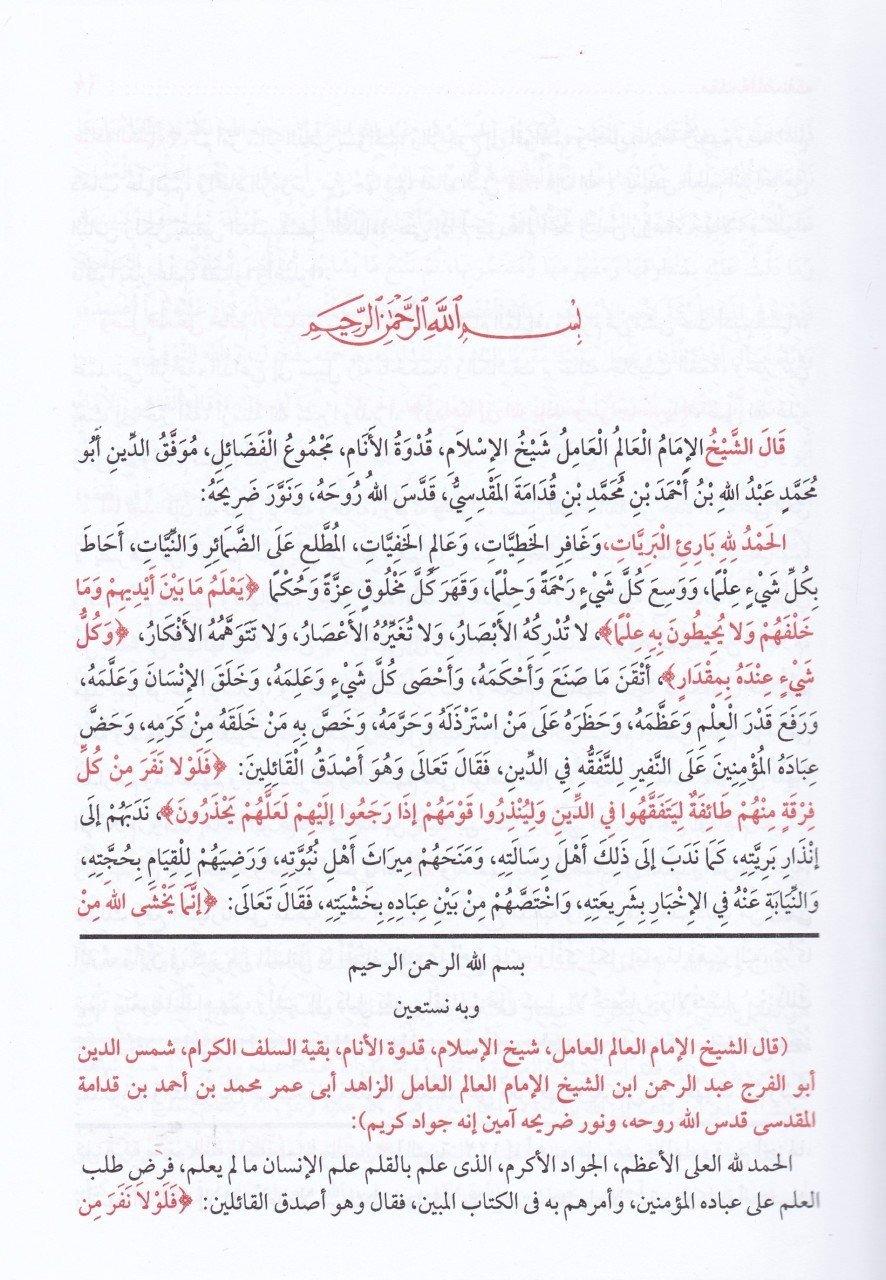 بِسْمِ اللَّهِ الرَّحْمَٰنِ الرَّحِيمِ
قَالَ الشَّيْخُ الإِمَامُ الْعَالِمُ الْعَامِلُ شَيْخُ الإِسْلَامِ، قُدْوَةُ الأَنَامِ، مَجْمُوعُ الْفَضَائِلِ، مُوَفَّقُ الدِّينِ أَبُو
مُحَمَّدٍ عَبْدُ اللهِ بْنُ أَحْمَدَ بْنِ مُحَمَّدِ بْنِ قُدَامَةَ المَقْدِسِيُّ، قَدَّسَ اللهُ رُوحَهُ، وَنَوَّرَ ضَرِيحَهُ:
الحَمْدُ لِلهِ بَارِئِ الْبَرِيَّاتِ، وَغَافِرِ الخَطِيَّاتِ، وَعَالِمِ الخَفِيَّاتِ، المُطَّلِعِ عَلَى الضَّمَائِرِ وَالنِّيَّاتِ، أَحَاطَ
بِكُلِّ شَيْءٍ عِلْمًا، وَوَسِعَ كُلَّ شَيْءٍ رَحْمَةً وَحِلْمًا، وَقَهَرَ كُلَّ مَخْلُوقٍ عِزَّةً وَحُكْمًا ﴿يَعْلَمُ مَا بَيْنَ أَيْدِيهِمْ وَمَا
خَلْفَهُمْ وَلَا يُحِيطُونَ بِهِ عِلْمًا﴾، لَا تُدْرِكُهُ الأَبْصَارُ، وَلَا تُغَيِّرُهُ الأَعْصَارُ، وَلَا تَتَوَهَّمُهُ الأَفْكَارُ، ﴿وَكُلُّ
شَيْءٍ عِنْدَهُ بِمِقْدَارٍ﴾، أَتْقَنَ مَا صَنَعَ وَأَحْكَمَهُ، وَأَحْصَى كُلَّ شَيْءٍ وَعَلِمَهُ، وَخَلَقَ الإِنْسَانَ وَعَلَّمَهُ،
وَرَفَعَ قَدْرَ الْعِلْمِ وَعَظَّمَهُ، وَحَظَرَهُ عَلَى مَنْ اسْتَرْذَلَهُ وَحَرَّمَهُ، وَخَصَّ بِهِ مَنْ خَلَقَهُ مِنْ كَرَمِهِ، وَحَضَّ
عِبَادَهُ المُؤْمِنِينَ عَلَى النَّفِيرِ لِلتَّفَقُّهِ فِي الدِّينِ، فَقَالَ تَعَالَى وَهُوَ أَصْدَقُ الْقَائِلِينَ: ﴿فَلَوْلَا نَفَرَ مِنْ كُلِّ
فِرْقَةٍ مِنْهُمْ طَائِفَةٌ لِيَتَفَقَّهُوا فِي الدِّينِ وَلِيُنْذِرُوا قَوْمَهُمْ إِذَا رَجَعُوا إِلَيْهِمْ لَعَلَّهُمْ يَحْذَرُونَ﴾، نَدَبَهُمْ إِلَى
إِنْذَارِ بَرِيَّتِهِ، كَمَا نَدَبَ إِلَى ذَلِكَ أَهْلَ رِسَالَتِهِ، وَمَنَحَهُمْ مِيرَاثَ أَهْلِ نُبُوَّتِهِ، وَرَضِيَهُمْ لِلْقِيَامِ بِحُجَّتِهِ،
وَالنِّيَابَةِ عَنْهُ فِي الإِخْبَارِ بِشَرِيعَتِهِ، وَاخْتَصَّهُمْ مِنْ بَيْنِ عِبَادِهِ بِخَشْيَتِهِ، فَقَالَ تَعَالَى: ﴿إِنَّمَا يَخْشَى اللهَ مِنْ
بسم الله الرحمن الرحيم
وبه نستعين
(قال الشيخ الإمام العالم العامل، شيخ الإسلام، قدوة الأنام، بقية السلف الكرام، شمس الدين
أبو الفرج عبد الرحمن ابن الشيخ الإمام العالم العامل الزاهد أبى عمر محمد بن أحمد بن قدامة
المقدسى قدس الله روحه، ونور ضريحه آمين إنه جواد كريم):
الحمد لله العلى الأعظم، الجواد الأكرم، الذى علم بالقلم علم الإنسان ما لم يعلم، فرض طلب
العلم على عباده المؤمنين، وأمرهم به فى الكتاب المبين، فقال وهو أصدق القائلين: ﴿فَلَوْلَا نَفَرَ مِن